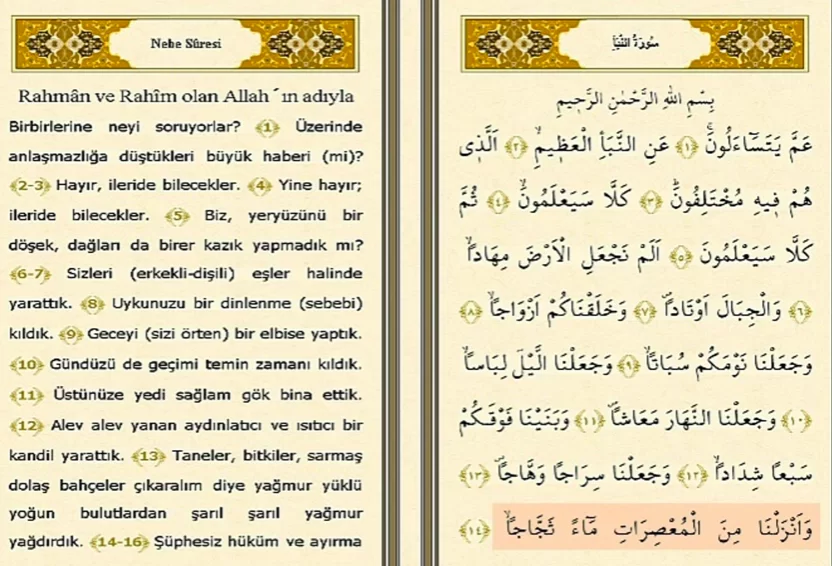 Nebe Sûresi
Rahmân ve Rahîm olan Allah´ın adıyla
Birbirlerine neyi soruyorlar? ﴾1﴿ Üzerinde
anlaşmazlığa düştükleri büyük haberi (mi)?
﴾2-3﴿ Hayır, ileride bilecekler. ﴾4﴿ Yine hayır;
ileride bilecekler. ﴾5﴿ Biz, yeryüzünü bir
döşek, dağları da birer kazık yapmadık mı?
﴾6-7﴿ Sizleri (erkekli-dişili) eşler halinde
yarattık. ﴾8﴿ Uykunuzu bir dinlenme (sebebi)
kıldık. ﴾9﴿ Geceyi (sizi örten) bir elbise yaptık.
﴾10﴿ Gündüzü de geçimi temin zamanı kıldık.
﴾11﴿ Üstünüze yedi sağlam gök bina ettik.
﴾12﴿ Alev alev yanan aydınlatıcı ve ısıtıcı bir
kandil yarattık. ﴾13﴿ Taneler, bitkiler, sarmaş
dolaş bahçeler çıkaralım diye yağmur yüklü
yoğun bulutlardan şarıl şarıl yağmur
yağdırdık. ﴾14-16﴿ Şüphesiz hüküm ve ayırma
سُورَةُ النَّبَأِ
بِسْمِ اللهِ الرَّحْمٰنِ الرَّحِيمِ
عَمَّ يَتَسَٓاءَلُونَۚ ﴿١﴾ عَنِ النَّبَأِ الْعَظ۪يمِۙ ﴿٢﴾ اَلَّذ۪ي
هُمْ ف۪يهِ مُخْتَلِفُونَۜ ﴿٣﴾ كَلَّا سَيَعْلَمُونَۙ ﴿٤﴾ ثُمَّ
كَلَّا سَيَعْلَمُونَ ﴿٥﴾ اَلَمْ نَجْعَلِ الْاَرْضَ مِهَاداًۙ
﴿٦﴾ وَالْجِبَالَ اَوْتَاداًۖ ﴿٧﴾ وَخَلَقْنَاكُمْ اَزْوَاجاًۙ ﴿٨﴾
وَجَعَلْنَا نَوْمَكُمْ سُبَاتاًۙ ﴿٩﴾ وَجَعَلْنَا الَّيْلَ لِبَاساًۙ
﴿١٠﴾ وَجَعَلْنَا النَّهَارَ مَعَاشاًۖ ﴿١١﴾ وَبَنَيْنَا فَوْقَكُمْ
سَبْعاً شِدَاداًۙ ﴿١٢﴾ وَجَعَلْنَا سِرَاجاً وَهَّاجاًۖ ﴿١٣﴾
وَاَنْزَلْنَا مِنَ الْمُعْصِرَاتِ مَٓاءً ثَجَّاجاًۙ ﴿١٤﴾